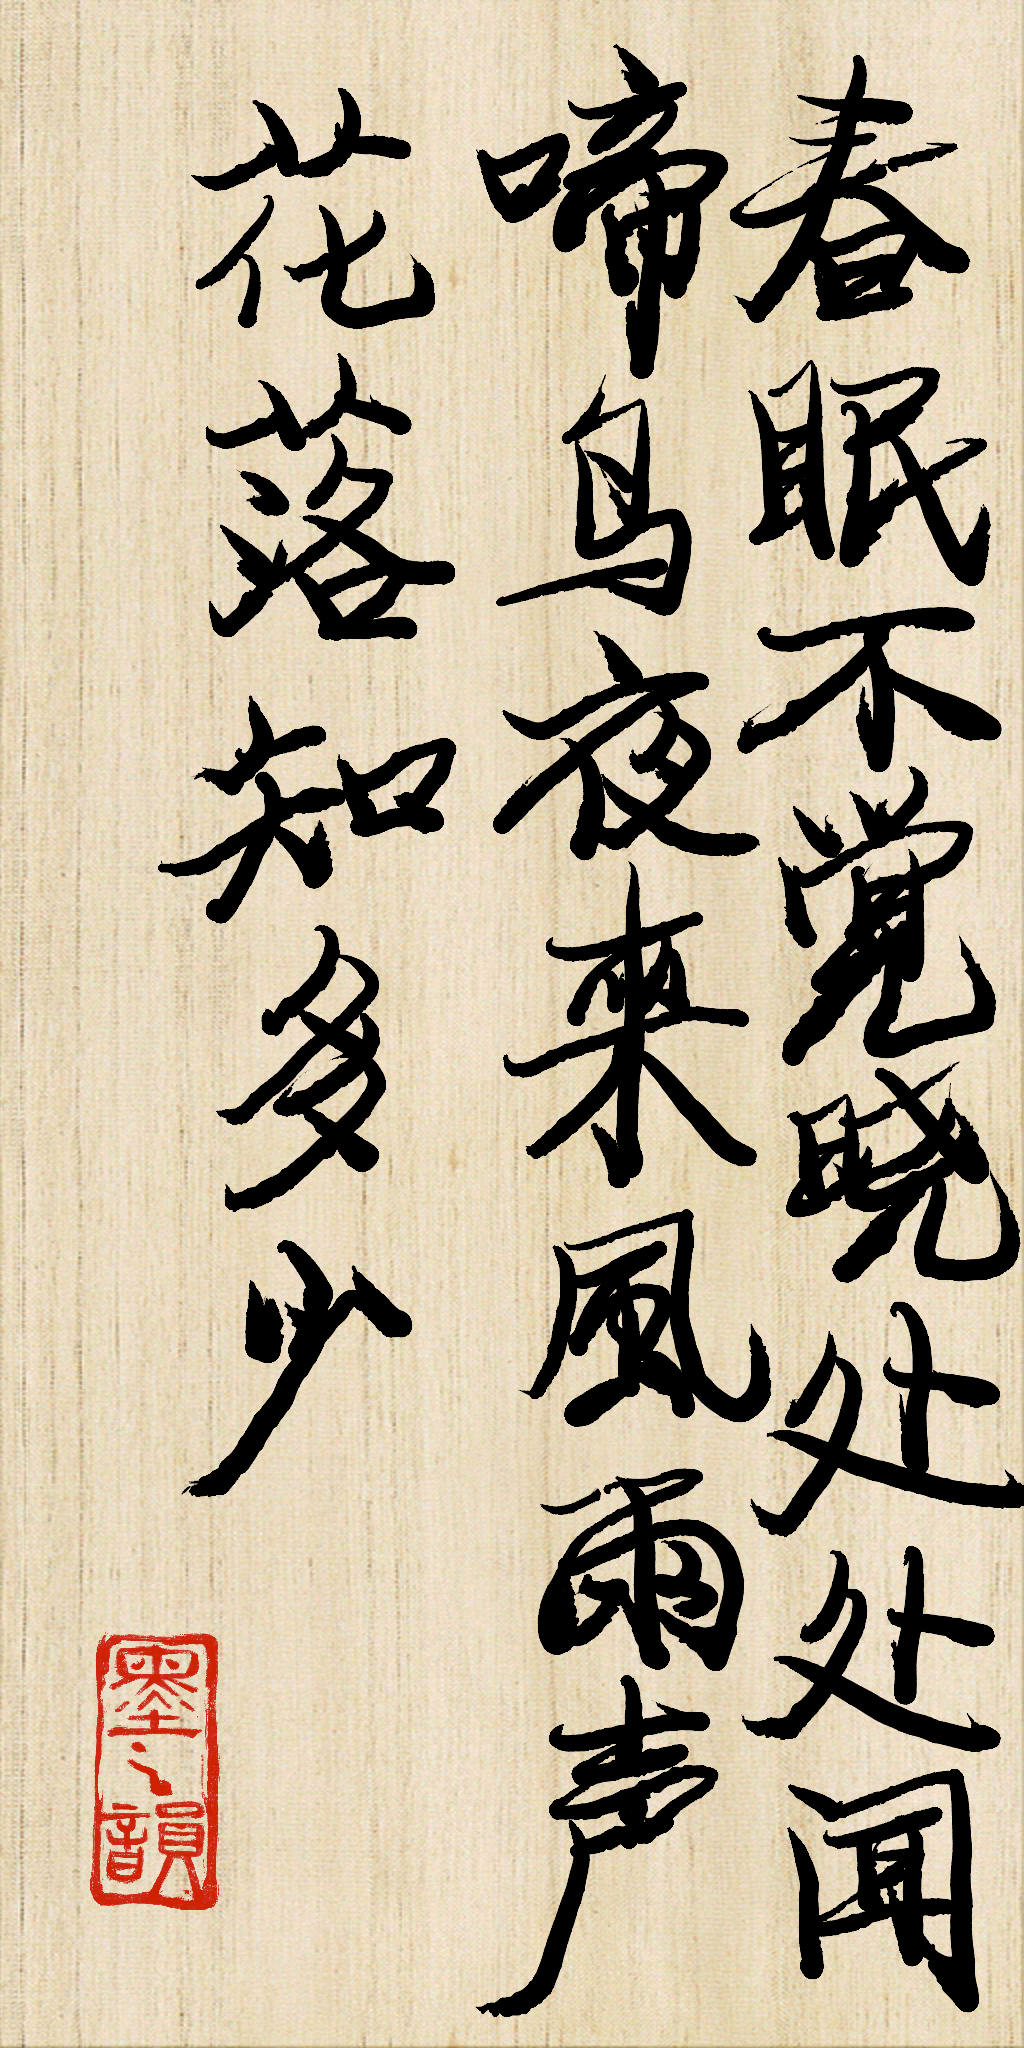 春眠不觉晓处处闻
啼鸟夜来風雨声
花落知多少
墨之韻